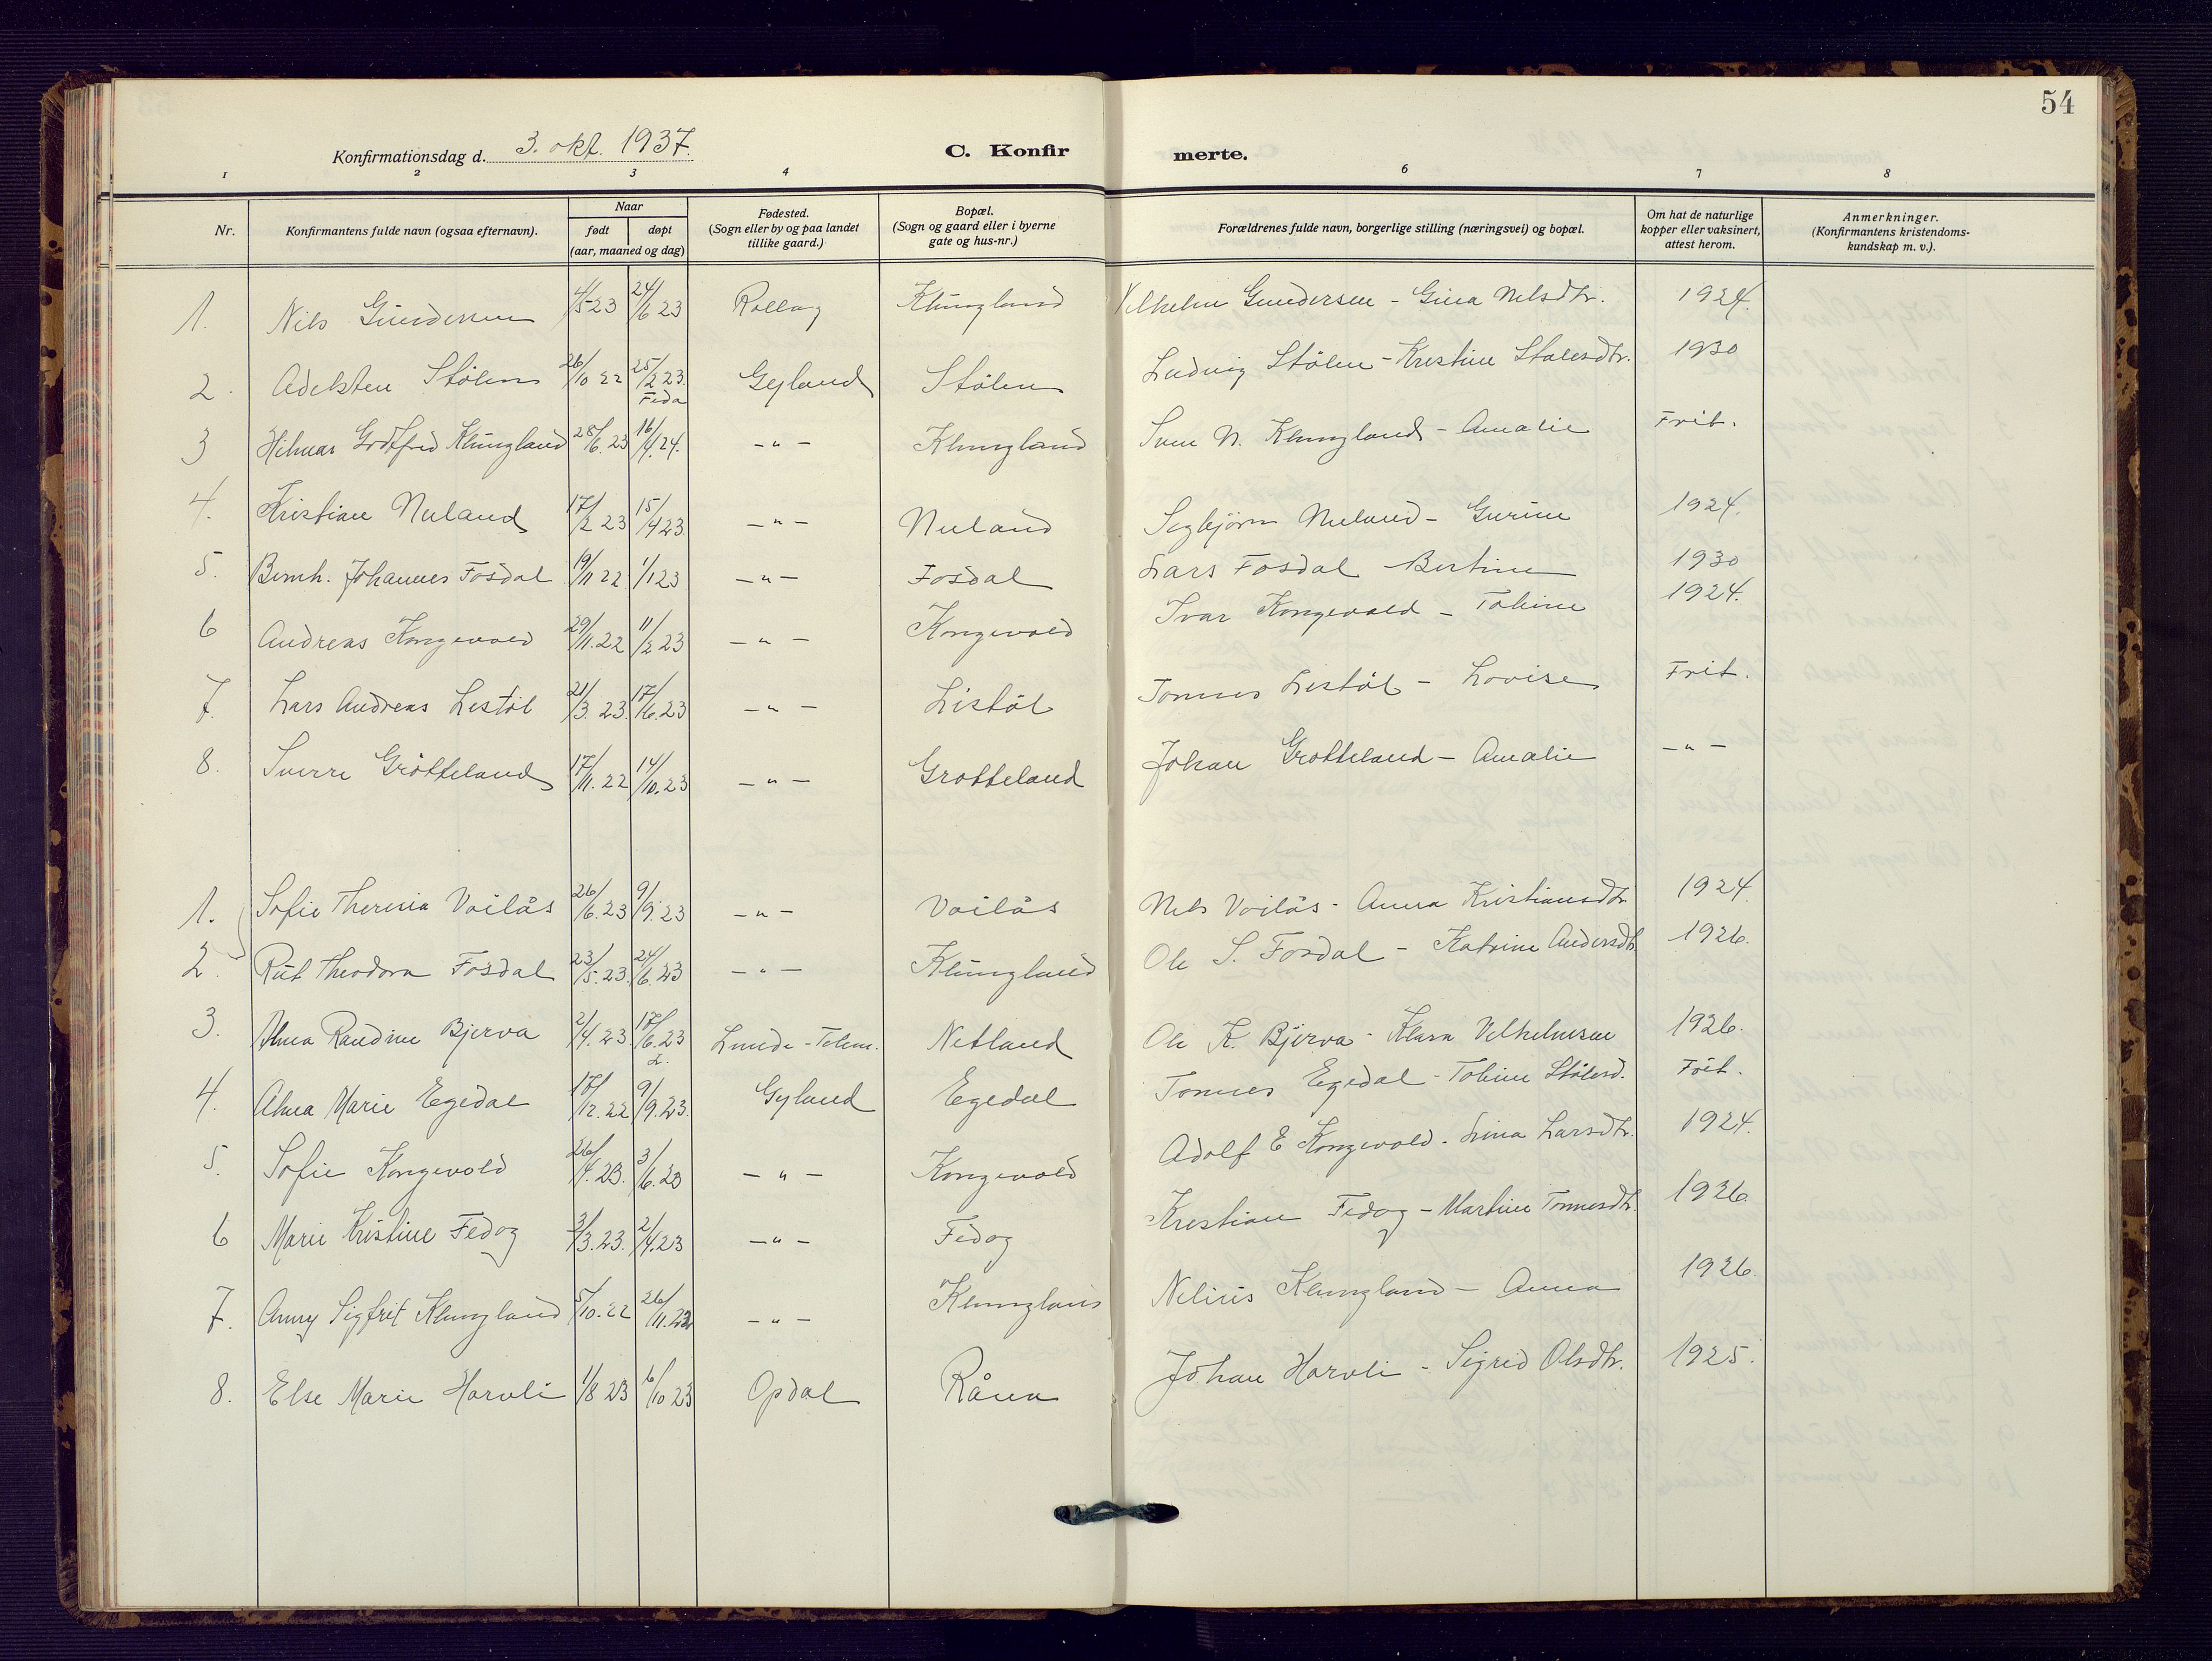 54
Konfirmationsdag d. 3. okt. 1937.
C. Konfirmerte.
1 2 3 4 6 7 8
Nr.
Konfirmantens fulde navn (ogsaa efternavn).
Naar
født døpt
(aar, maaned og dag)
Fødested.
(Sogn eller by og paa landet
tillike gaard.)
Bopæl.
(Sogn og gaard eller i byerne
gate og hus-nr.)
Forældrenes fulde navn, borgerlige stilling (næringsvei) og bopæl.
Om hat de naturlige
kopper eller vaksinert,
attest herom.
Anmerkninger.
(Konfirmantens kristendoms-
kundskap m. v.).
1. Nils Gundersen 4/5 23 24/6 23 Rollag Klungland Vilhelm Gundersen - Gina Nilsdtr. 1924.
2. Adelsten Stølen 26/10 22 25/2 23. Feda Gyland Stølen Ludvig Stølen - Kristine Stalesdtr. 1930
3 Hilmar Godtfred Klungland 28/6. 23 16/4. 24. -"- Klungland Sven N. Klungland - Amalie Frit.
4. Kristian Nuland 17/2 23 15/4 23. -"- Nuland Sigbjørn Nuland - Gurine 1924.
5. Bernh. Johannes Fosdal 19/11 22 1/1 23 -"- Fosdal Lars Fosdal - Bertine 1930
6 Andreas Kongevold 29/11. 22 11/2 23 -"- Kongevold Ivar Kongevold - Tobine 1924.
7. Lars Andreas Listøl 21/3. 23. 17/6. 23 -"- Listøl Tønnes Listøl - Lovise Frit.
8. Sverre Grøtteland 17/11. 22 14/10. 23 -"- Grøtteland Johan Grøtteland - Amalie -"-
1. Sofie Theresia Voilås 26/6. 23 9/9. 23 -"- Voilås Nils Voilås - Anna Kristiansdtr 1924.
2. Rut Theodora Fosdal 23/5. 23. 24/6. 23 -"- Klungland Ole S. Fosdal - Katrine Andersdtr 1926.
3. Alma Randine Bjerva 2/4. 23 17/6. 23 L. Lunde - Telem. Netland Ole K. Bjerva - Klara Vilhelmsen 1926.
4. Alma Marie Egedal 17/12. 22 9/9. 23. Gyland Egedal Tønnes Egedal - Tobine Stålesd. Frit.
5. Sofie Kongevold 26/4. 23. 3/6. 23 -"- Kongevold Adolf E Kongevold - Lina Larsdtr. 1924.
6 Marie Kristine Fedog 3/3. 23. 2/4. 23 -"- Fedog Kristian Fedog - Martine Tønnesdtr. 1926.
7. Anny Sigfrit Klungland 5/10. 22 26/11. 22 -"- Klungland Nelius Klungland - Anna 1926.
8. Else Marie Horvli 1/8 23 6/10 23 Opdal Råna Johan Horvli - Sigrid Olsdtr. 1925.